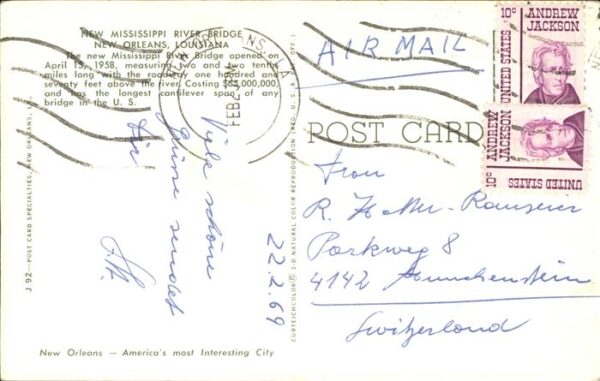 NEW MISSISSIPPI RIVER BRIDGE
NEW ORLEANS, LOUISIANA
The new Mississippi River Bridge opened on
April 15, 1958, measuring two and two tenths
miles long with the roadway one hundred and
seventy feet above the river. Costing $65,000,000,
and has the longest cantilever span of any
bridge in the U. S.
NEW ORLEANS, LA
FEB 2
AIR MAIL
10¢ ANDREW JACKSON
UNITED STATES
10¢ ANDREW JACKSON
UNITED STATES
POST CARD
Viele schöne
Grüsse sendet
22.2.69
Frau
R.
Parkweg 8
4142 Münchenstein
Switzerland
J 92 — POST CARD SPECIALTIES, NEW ORLEANS,
CURTEICHCOLOR® 3-D NATURAL COLOR REPRODUCTION (REG. U.S.A. PAT. OFF.)
New Orleans — America's most Interesting City